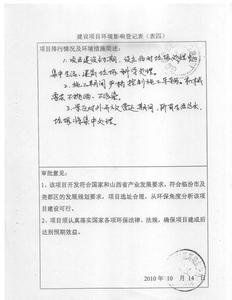 建设项目环境影响登记表（表四）
项目排污情况及环境措施简述：
1、项目建设初期，设立临时垃圾处理
集中生活、建筑垃圾，科学处理。
2、施工期间严格控制施工车辆、机械
3、景区对外开放营运期间，所有生活污水、
垃圾将集中处理。
审批意见：
1、该项目开发符合国家和山西省产业发展要求，符合临汾市及
尧都区的发展规划要求，项目选址合理，从环保角度分析该项
目建设可行。
2、项目须认真落实国家各项环保法律、法规，确保项目建成后
达到预期效益。
2010 年 10 月 14 日